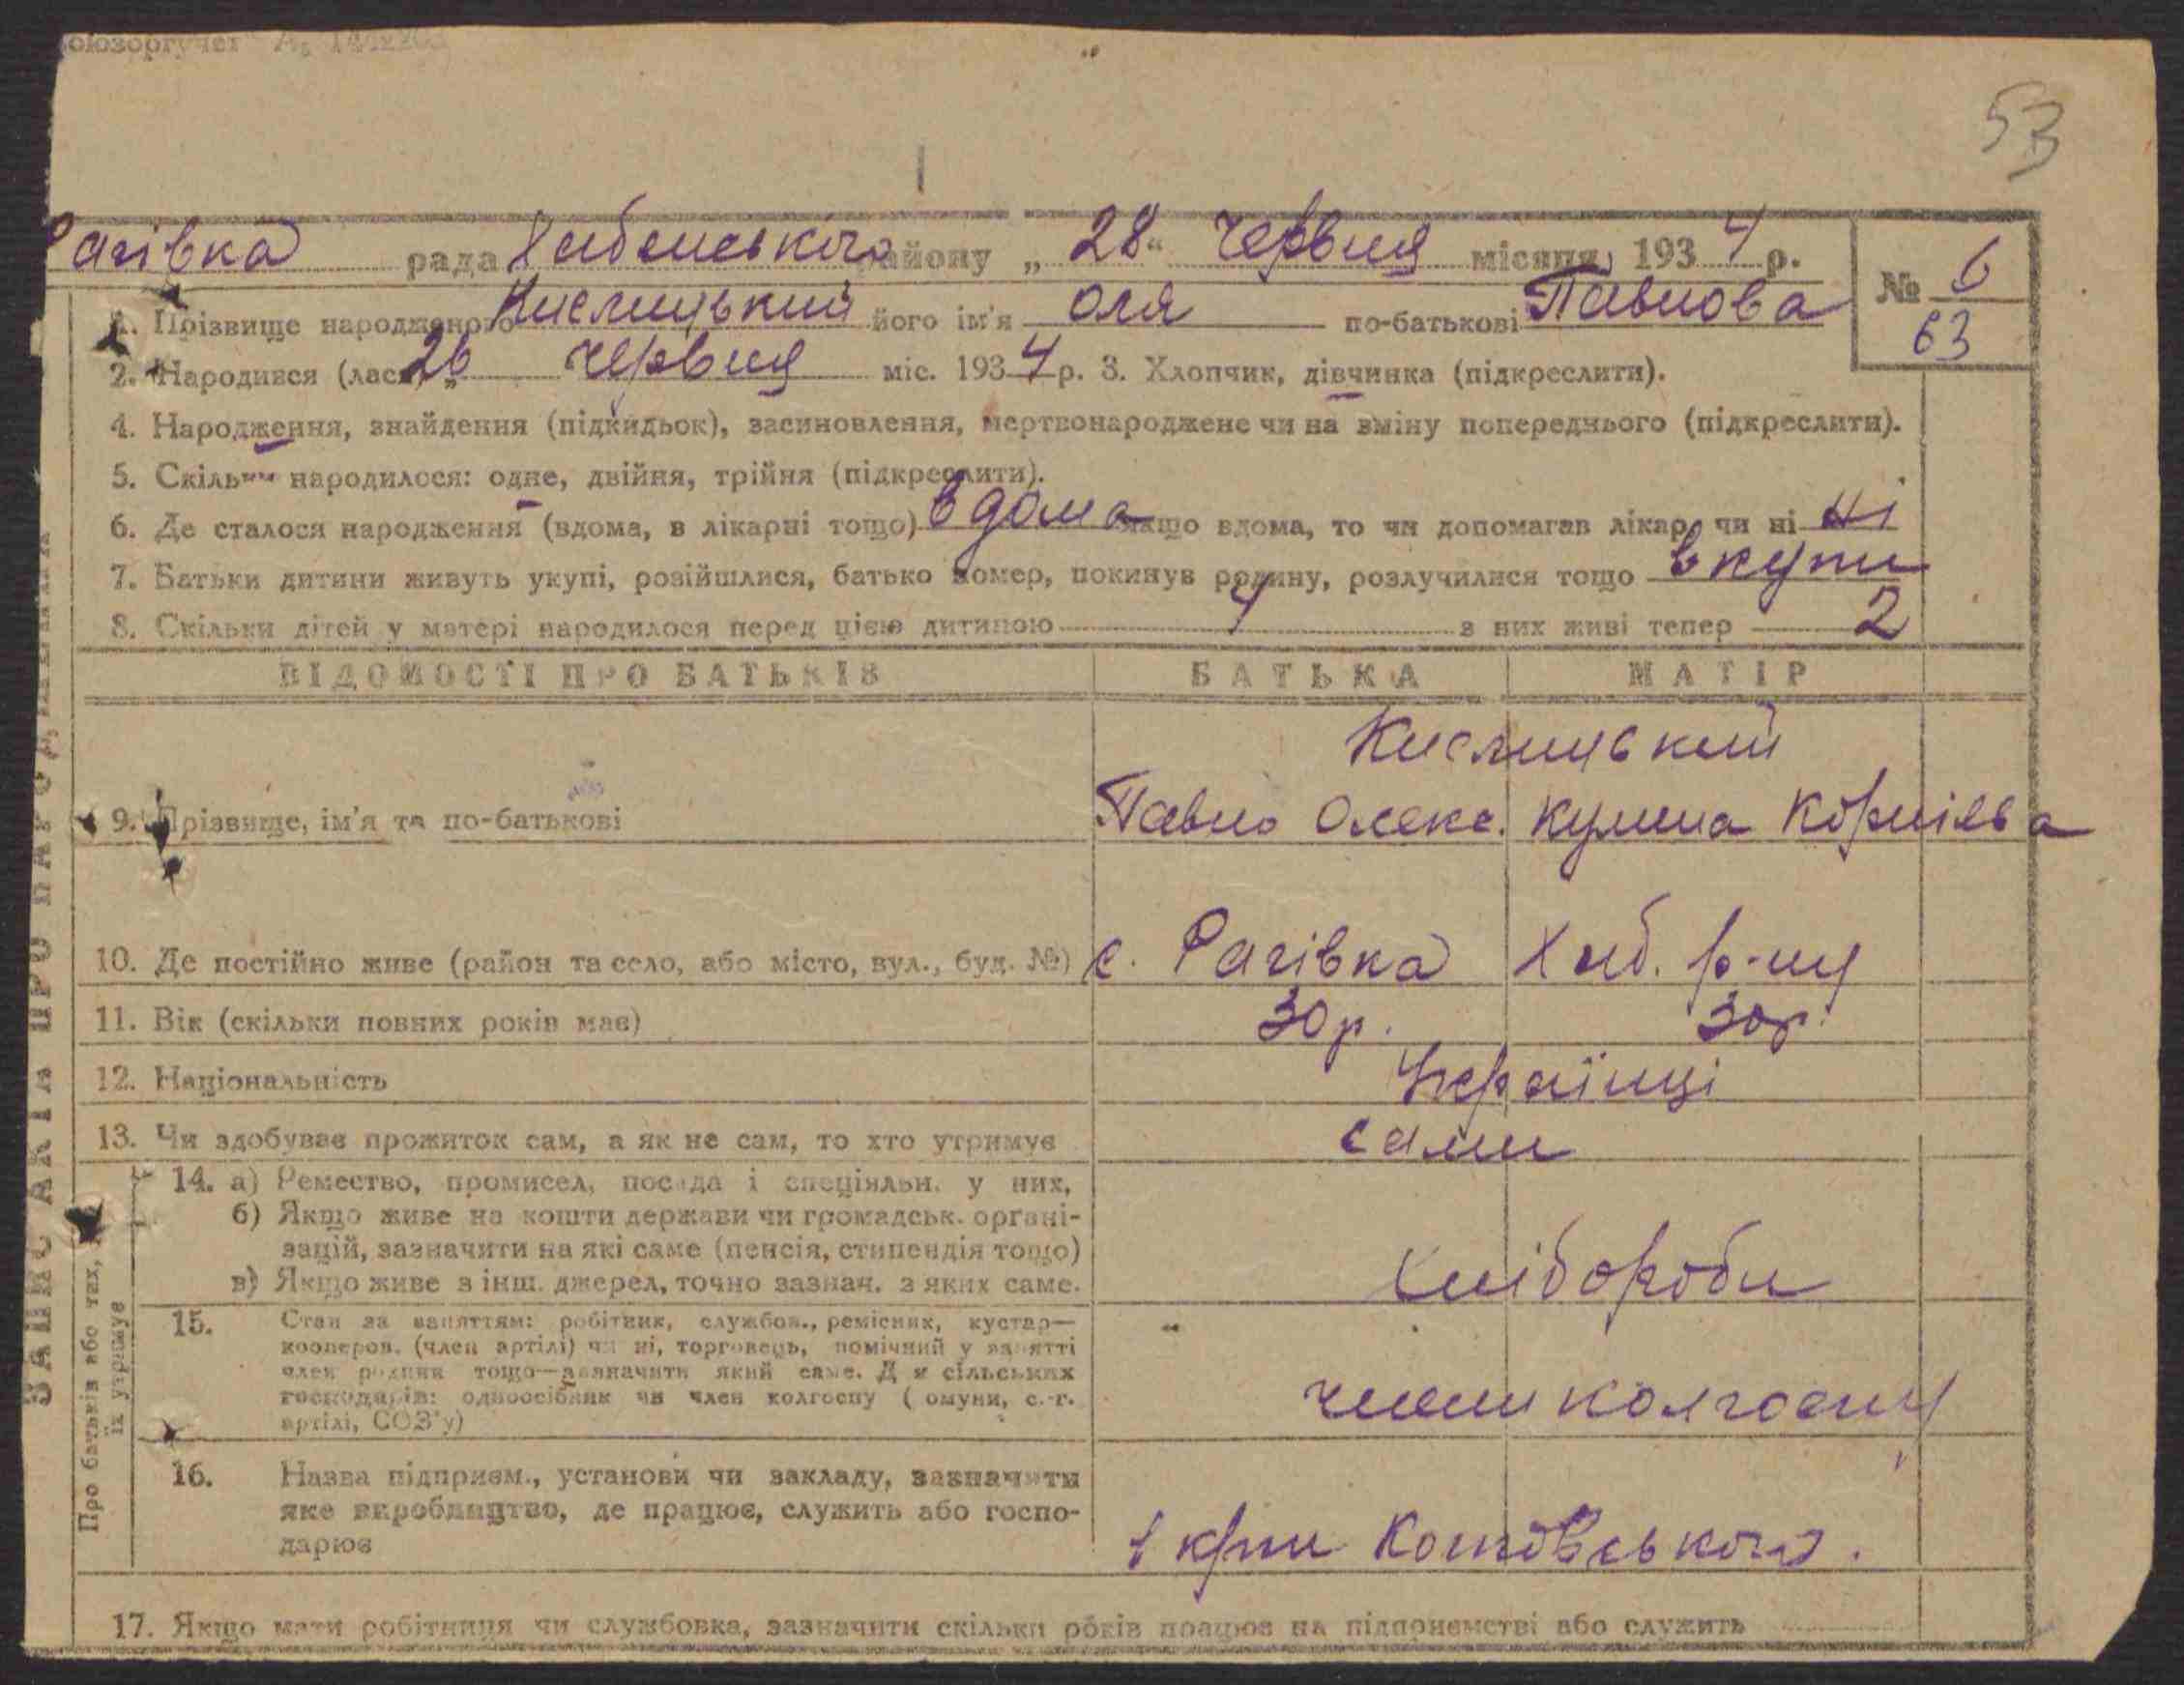 53
Рагівка рада Хабенського району „28“ Червня місяця 1934 р. № 6
63
1. Прізвище народженого Кислицький його ім'я Оля по-батькові Павлова
2. Народився (лась) 26 червня міс. 1934 р. 3. Хлопчик, дівчинка (підкреслити).
4. Народження, знайдення (підкидьок), засиновлення, мертвонароджене чи на зміну попереднього (підкреслити).
5. Скільки народилося: одне, двійня, трійня (підкреслити).
6. Де сталося народження (вдома, в лікарні тощо) вдома якщо вдома, то чи допомагав лікар, чи ні ні
7. Батьки дитини живуть укупі, розійшлися, батько помер, покинув родину, розлучилися тощо вкупи
8. Скільки дітей у матері народилося перед цією дитиною 4 з них живі тепер 2
ВІДОМОСТІ ПРО БАТЬКІВ БАТЬКА МАТІР
Кислицький
9. Прізвище, ім'я та по-батькові Павло Олекс. Кулина Корнієва
10. Де постійно живе (район та село, або місто, вул., буд. №) с. Рагівка Хаб. р-ну
11. Вік (скільки повних років має) 30 р. 30 р.
12. Національність Українці
13. Чи здобуває прожиток сам, а як не сам, то хто утримує сами
14. а) Ремество, промисел, посада і спеціяльн. у них,
б) Якщо живе на кошти держави чи громадськ. органі-
зацій, зазначити на які саме (пенсія, стипендія тощо)
в) Якщо живе з інш. джерел, точно зазнач. з яких саме.
хлібороби
15. Стан за заняттям: робітник, службов., ремісник, кустар—
кооперов. (член артілі) чи ні, торговець, помічний у занятті
член родини тощо—зазначити який саме. Для сільських
господарів: одноосібник чи член колгоспу (комуни, с.-г.
артілі, СОЗ'у)
члени колгоспу
16. Назва підприєм., установи чи закладу, зазначити
яке виробництво, де працює, служить або госпо-
дарює
Котовського.
17. Якщо мати робітниця чи службовка, зазначити скільки років працює на підприємстві або служить
ЗАПИС АКТА ПРО НАРОДЖЕННЯ
Про батьків або тих, хто
їх утримує